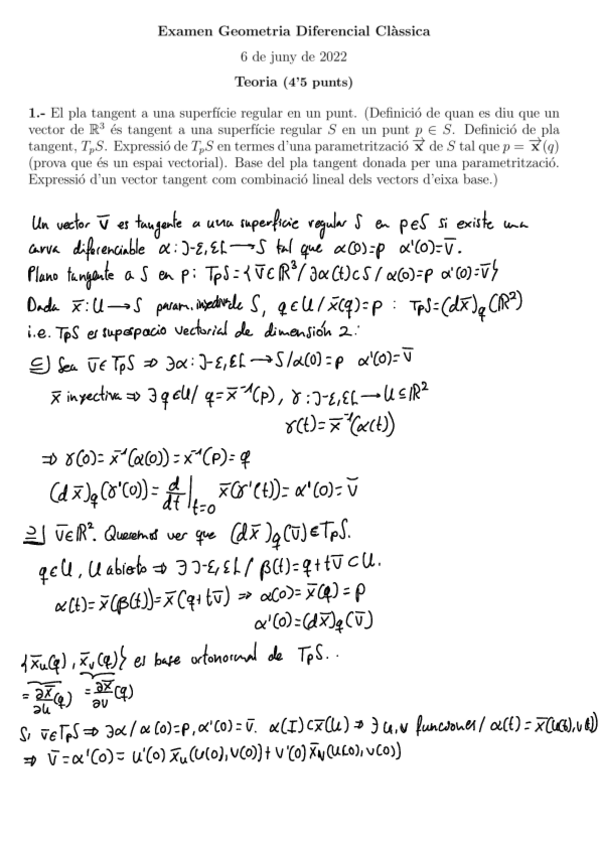 Examen Geometria Diferencial Clàssica
6 de juny de 2022
Teoria (4'5 punts)
1.- El pla tangent a una superfície regular en un punt. (Definició de quan es diu que un
vector de ℝ³ és tangent a una superfície regular S en un punt p ∈ S. Definició de pla
tangent, TₚS. Expressió de TₚS en termes d'una parametrització x⃗ de S tal que p = x⃗(q)
(prova que és un espai vectorial). Base del pla tangent donada per una parametrització.
Expressió d'un vector tangent com combinació lineal dels vectors d'eixa base.)
Un vector v̄ es tangente a una superficie regular S en p∈S si existe una
curva diferenciable α: ]-ε,ε[ → S tal que α(0)=p α'(0)=v̄.
Plano tangente a S en p: TₚS={v̄∈ℝ³/∃α(t)⊂S/α(0)=p α'(0)=v̄}
Dada x̄: U→S param. de S, q∈U/x̄(q)=p : TₚS=(dx̄)_q(ℝ²)
i.e. TₚS es supespacio vectorial de dimensión 2:
⊆) Sea v̄∈TₚS ⇒ ∃α: ]-ε,ε[→S/α(0)=p α'(0)=v̄
x̄ inyectiva ⇒ ∃q∈U/ q=x̄⁻¹(p), γ: ]-ε,ε[→U⊆ℝ²
γ(t)=x̄⁻¹(α(t))
⇒ γ(0)=x̄⁻¹(α(0))=x̄⁻¹(p)=q
(dx̄)_q(γ'(0))= d/dt|_{t=0} x̄(γ'(t))=α'(0)=v̄
⊇) v̄∈ℝ². Queremos ver que (dx̄)_q(v̄)∈TₚS.
q∈U, U abierto ⇒ ∃ ]-ε,ε[ / β(t)=q+tv̄⊂U.
α(t)=x̄(β(t))=x̄(q+tv̄) ⇒ α(0)=x̄(q)=p
α'(0)=(dx̄)_q(v̄)
{x̄ᵤ(q), x̄ᵥ(q)} es base ortonormal de TₚS..
=∂x̄/∂u(q) =∂x̄/∂v(q)
Si v̄∈TₚS ⇒ ∃α/α(0)=p, α'(0)=v̄. α(I)⊂x̄(U) ⇒ ∃u,v funciones/α(t)=x̄(u(t),v(t))
⇒ v̄=α'(0)=u'(0)x̄ᵤ(u(0),v(0))+v'(0)x̄ᵥ(u(0),v(0))